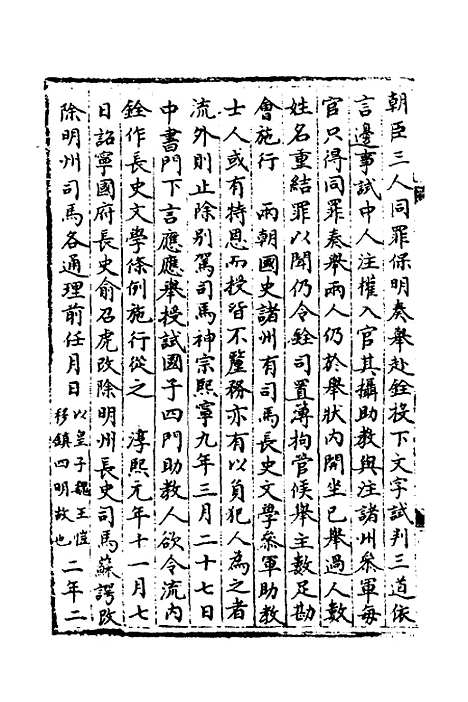 朝臣三人同罪保明奏舉赴銓投下文字試判三道依
言邊事試中人注權入官其攝助教與注諸州叅軍每
官只得同罪奏舉兩人仍於舉狀内開坐已舉過人數
姓名重結罪以聞仍令銓司置簿拘管候舉主數足勘
會施行　兩朝國史諸州有司馬長史文學叅軍助教
士人或有特恩而授皆不釐務亦有以負犯人為之者
流外則止除別駕司馬神宗熙寧九年三月二十七日
中書門下言應應舉授試國子四門助教人欲令流内
銓作長史文學條例施行從之　淳熙元年十一月七
日詔寧國府長史俞召虎改除明州長史司馬蘇諤改
除明州司馬各通理前任月日以皇子魏王愷移鎮四明故也二年二